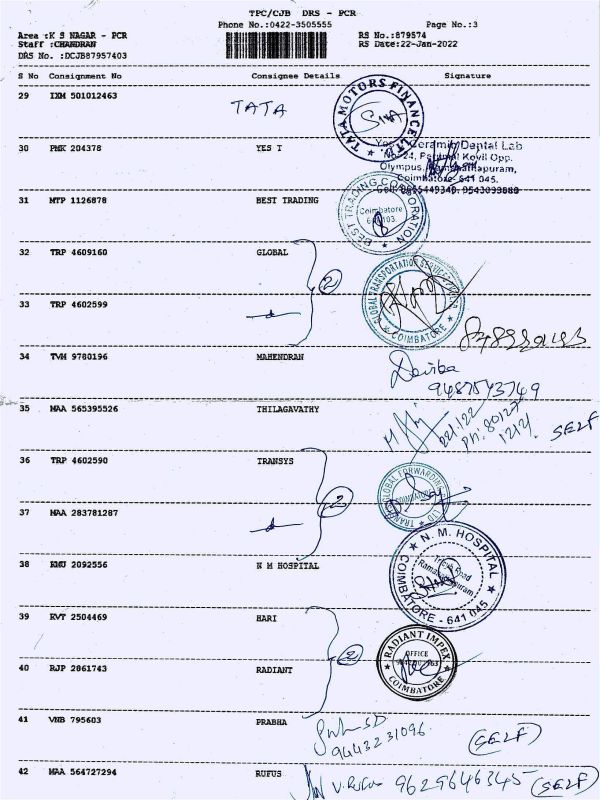 TPC/CJB DRS - PCR
Phone No.:0422-3505555 Page No.:3
Area :K S NAGAR - PCR RS No.:879574
Staff :CHANDRAN RS Date:22-Jan-2022
DRS No. :DCJB87957403
S No Consignment No Consignee Details Signature
29 IXM 501012463 TATA TATA MOTORS FINANCE LTD
30 PMK 204378 YES T
Ceramic Dental Lab
No. 24, Perumal Kovil Opp.
Olympus, Ramanathapuram,
Coimbatore- 641 045.
31 MTP 1126878 BEST TRADING BEST TRADING CORPORATION Coimbatore
32 TRP 4609160 GLOBAL 2 GLOBAL TRANSPORTATION COIMBATORE
33 TRP 4602599
34 TVM 9780196 MAHENDRAN
9487543749
35 MAA 565395526 THILAGAVATHY SELF
36 TRP 4602590 TRANSYS 2 GLOBAL FORWARDING COIMBATORE
37 MAA 283781287
38 KMU 2092556 N M HOSPITAL N. M. HOSPITAL Ramanathapuram, COIMBATORE - 641 045
39 KVT 2504469 HARI 2
40 RJP 2861743 RADIANT RADIANT IMPEX OFFICE COIMBATORE
41 VNB 795603 PRABHA
9443231096 (SELF)
42 MAA 564727294 RUFUS V. Rufus 9629646345 (SELF)